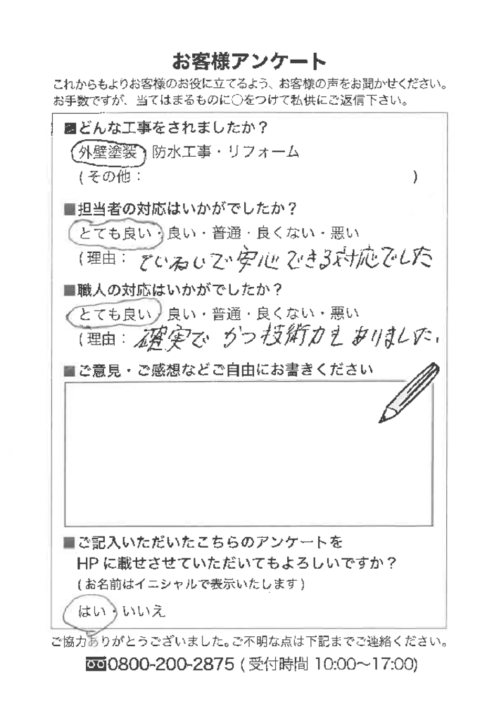 お客様アンケート
これからもよりお客様のお役に立てるよう、お客様の声をお聞かせください。
お手数ですが、当てはまるものに○をつけて私供にご返信下さい。
■どんな工事をされましたか？
外壁塗装・防水工事・リフォーム
(その他： )
■担当者の対応はいかがでしたか？
とても良い・良い・普通・良くない・悪い
(理由： ていねいで安心できる対応でした
■職人の対応はいかがでしたか？
とても良い・良い・普通・良くない・悪い
(理由： 確実でかつ技術力もありました。
■ご意見・ご感想などご自由にお書きください
■ご記入いただいたこちらのアンケートを
HPに載せさせていただいてもよろしいですか？
(お名前はイニシャルで表示いたします)
はい・いいえ
ご協力ありがとうございました。ご不明な点は下記までご連絡ください。
0800-200-2875 (受付時間 10:00〜17:00)